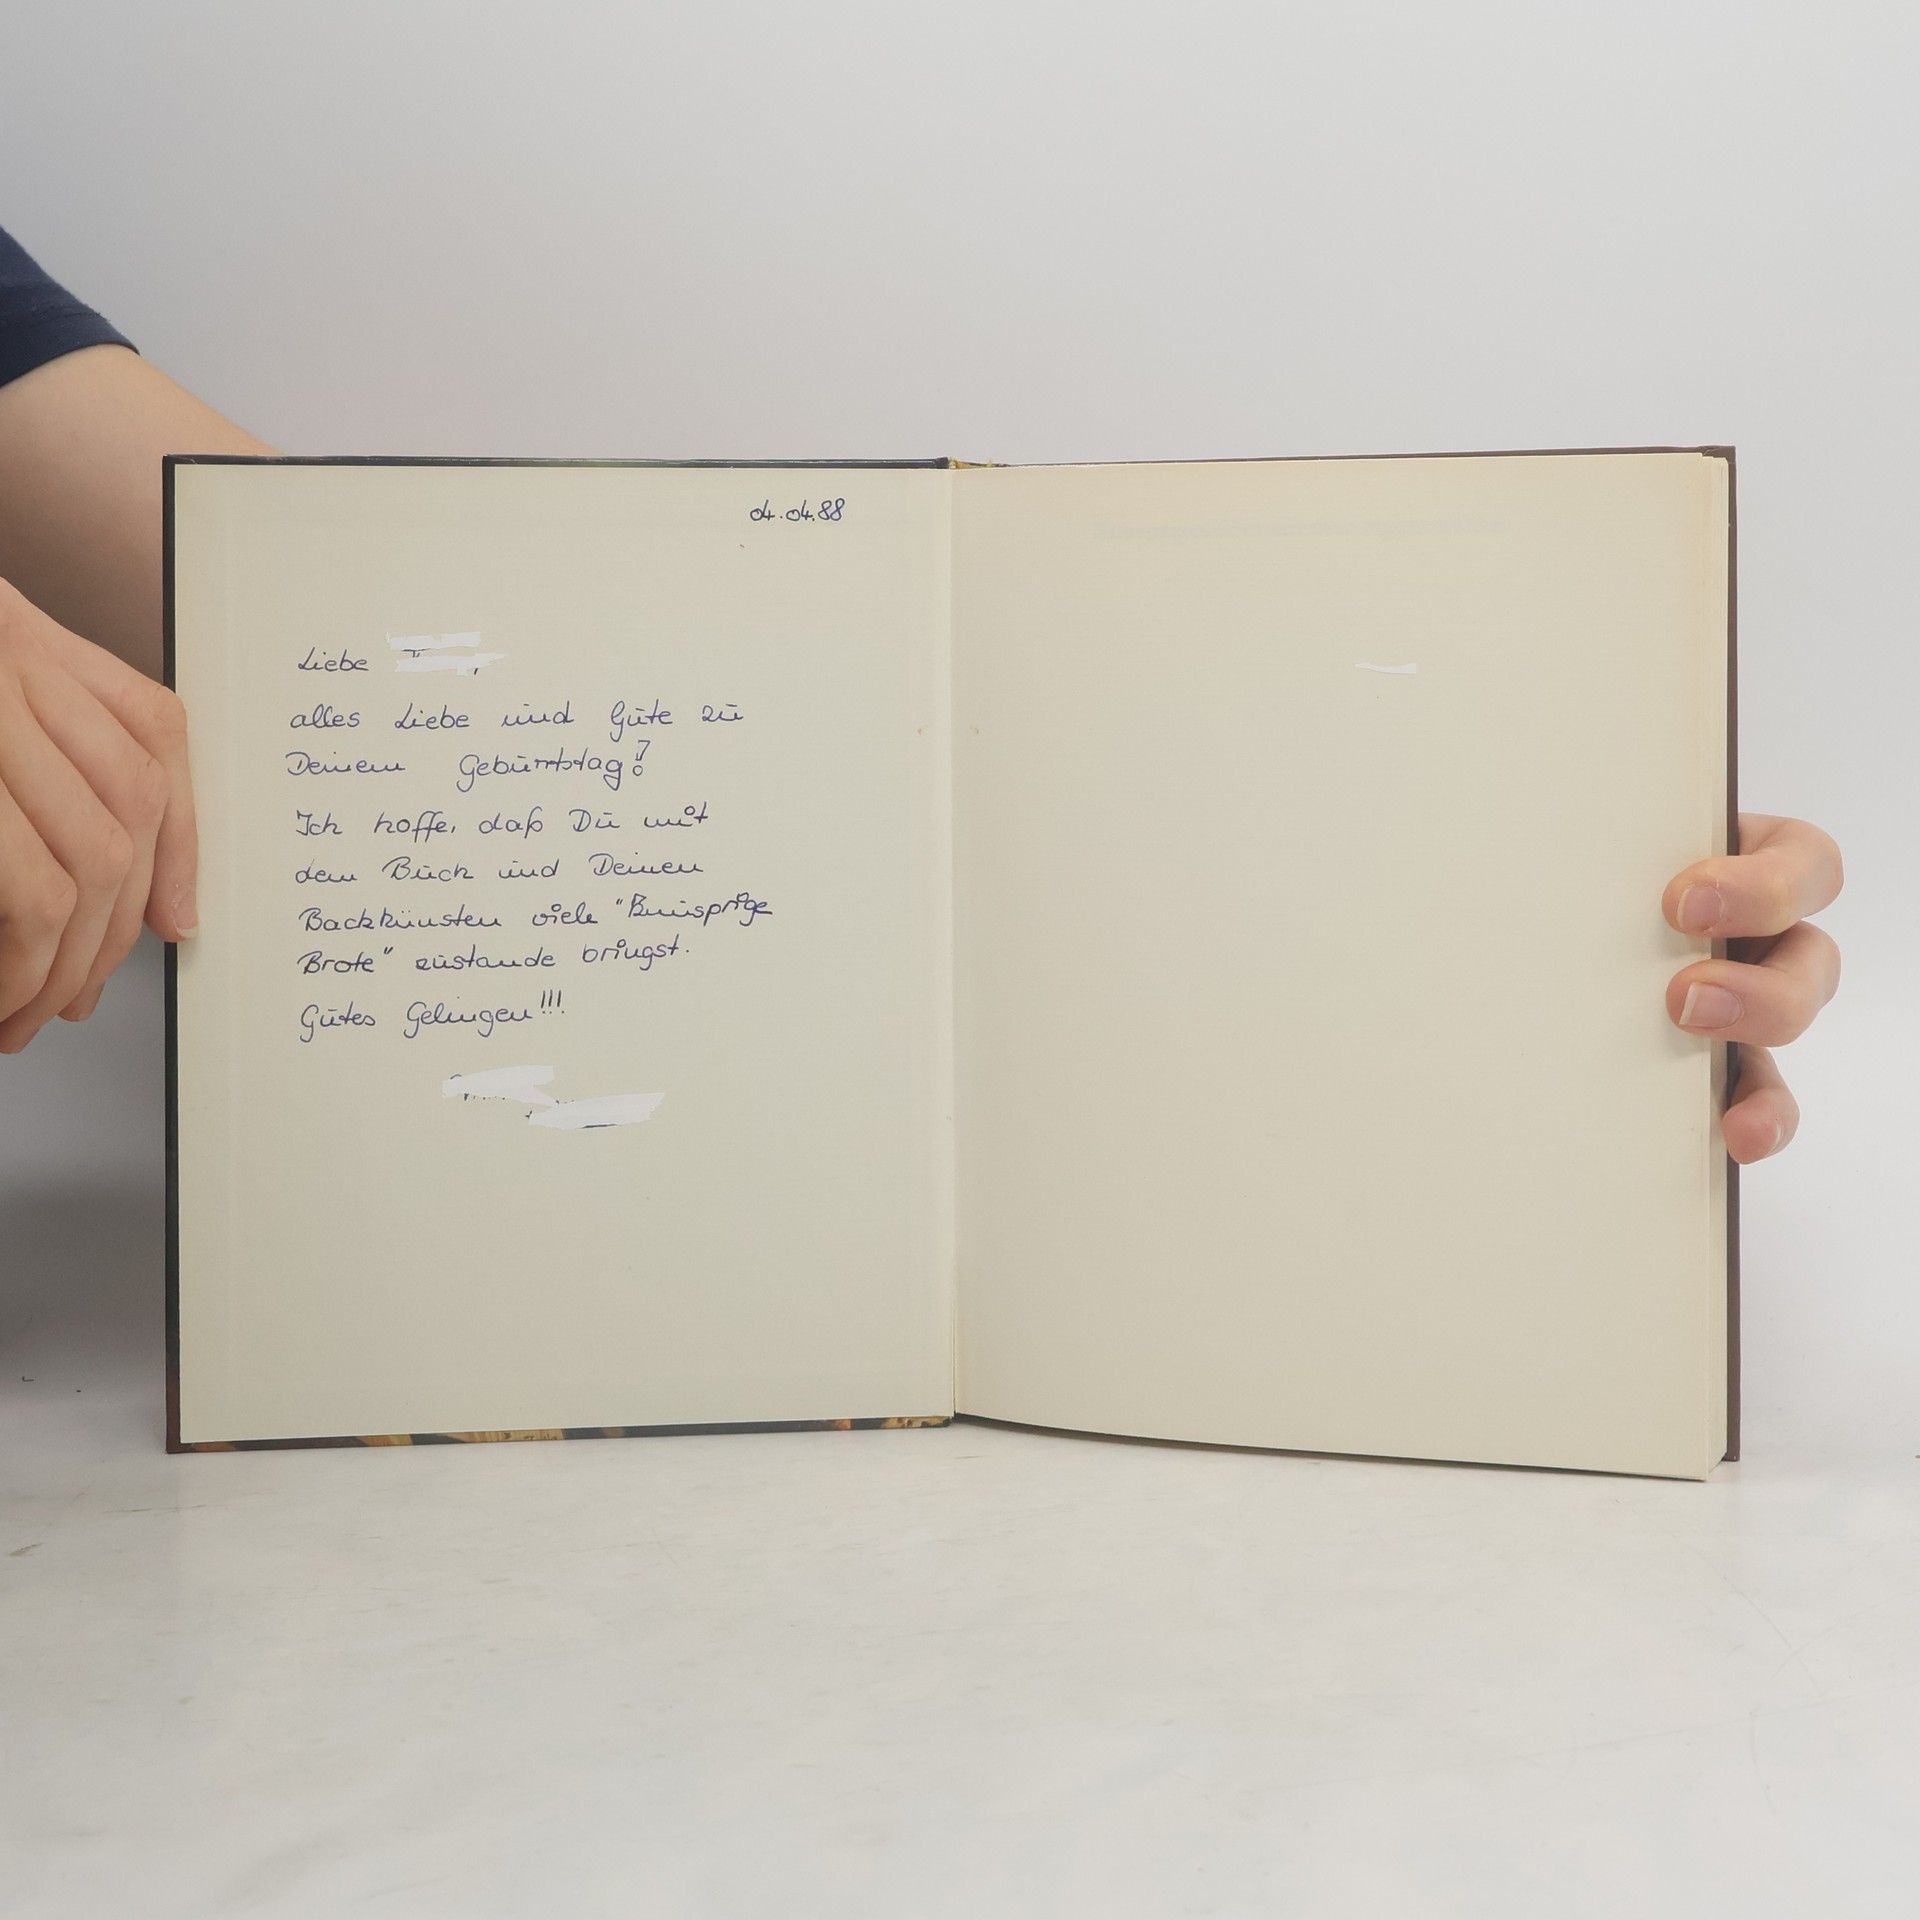 04.04.88
Liebe
alles Liebe und Gute zu
Deinem Geburtstag!
Ich hoffe, daß Du mit
dem Buch und Deinen
Backkünsten viele "
Brote" zustande bringst.
Gutes Gelingen!!!